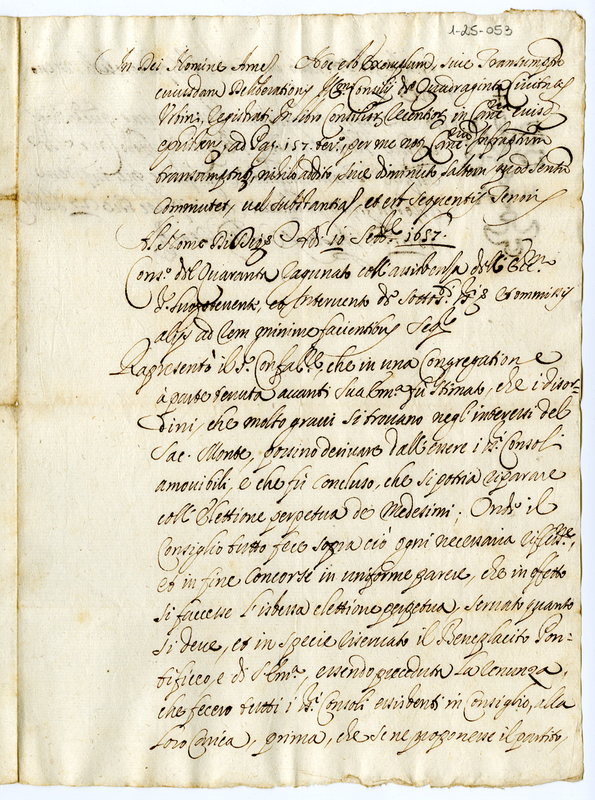 1-25-053
In Dei Nomine Amen. Hoc est exemplum, sive Transumptum
cuiusdam Deliberationis Consilij Quadraginta Civitatis
Urbini, Registrati in libro Consiliorum
ad Pag. 157. per me
transumptum, nihil addito, sive diminuto saltem quod sensum
commutet, vel substantiam, et est sequentis Tenoris
Al Nome di Dio Adi 10 Settbr. 1657.
Cons.o del Quaranta Ragunato coll'assistenza dell'
et Intervento de sottod.i &
alijs ad Rem minime facientibus Seq.
Rapresentò il S. Confal. che in una Congregatione
à parte tenuta avanti Sua Em.a fù stimato, che i disor-
dini, che molto gravi si trovano negl'interessi del
Sac. Monte, possino derivare dall'essere i Consoli
amovibili, e che fù concluso, che si potria riparare
coll'Elettione perpetua de Medesimi; Onde il
Consiglio tutto fece sopra ciò ogni necessaria
et in fine concorse in uniforme parere, che in effetto
si facesse l'istessa elettione perpetua, servato quanto
si deve, et in specie riservato il Beneplacito Pon-
tificeo, e di S. Em.a, essendo preceduta la renunza,
che fecero tutti i Consoli essistenti in Consiglio, alla
loro Carica, prima, che se ne proponesse il partito,